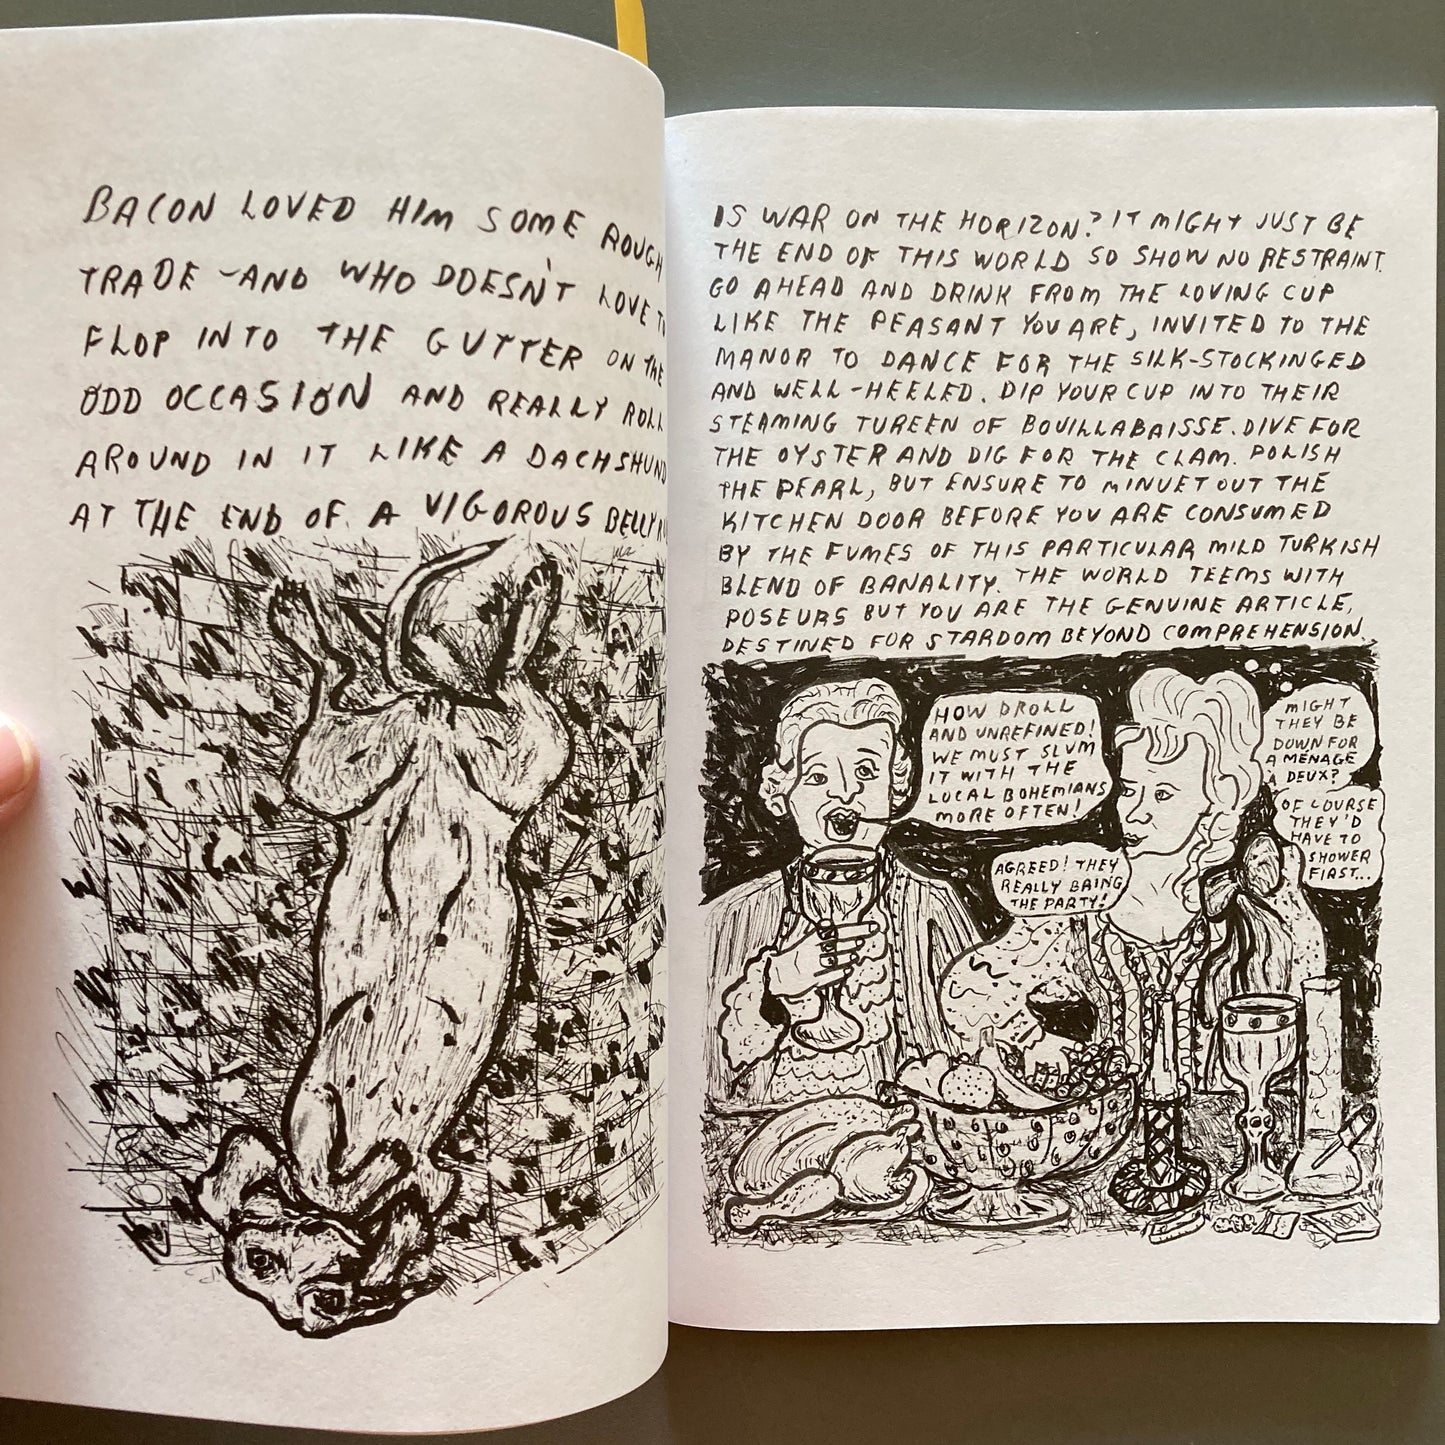 BACON LOVED HIM SOME ROUGH
TRADE - AND WHO DOESN'T LOVE TO
FLOP INTO THE GUTTER ON THE
ODD OCCASION AND REALLY ROLL
AROUND IN IT LIKE A DACHSHUND
AT THE END OF A VIGOROUS BELLY
IS WAR ON THE HORIZON? IT MIGHT JUST BE
THE END OF THIS WORLD SO SHOW NO RESTRAINT.
GO AHEAD AND DRINK FROM THE LOVING CUP
LIKE THE PEASANT YOU ARE, INVITED TO THE
MANOR TO DANCE FOR THE SILK-STOCKINGED
AND WELL-HEELED. DIP YOUR CUP INTO THEIR
STEAMING TUREEN OF BOUILLABAISSE. DIVE FOR
THE OYSTER AND DIG FOR THE CLAM. POLISH
THE PEARL, BUT ENSURE TO MINUET OUT THE
KITCHEN DOOR BEFORE YOU ARE CONSUMED
BY THE FUMES OF THIS PARTICULAR MILD TURKISH
BLEND OF BANALITY. THE WORLD TEEMS WITH
POSEURS BUT YOU ARE THE GENUINE ARTICLE,
DESTINED FOR STARDOM BEYOND COMPREHENSION.
HOW DROLL
AND UNREFINED!
WE MUST SLUM
IT WITH THE
LOCAL BOHEMIANS
MORE OFTEN!
AGREED! THEY
REALLY BRING
THE PARTY!
MIGHT
THEY BE
DOWN FOR
A MÉNAGE
À DEUX?
OF COURSE
THEY'D
HAVE TO
SHOWER
FIRST...